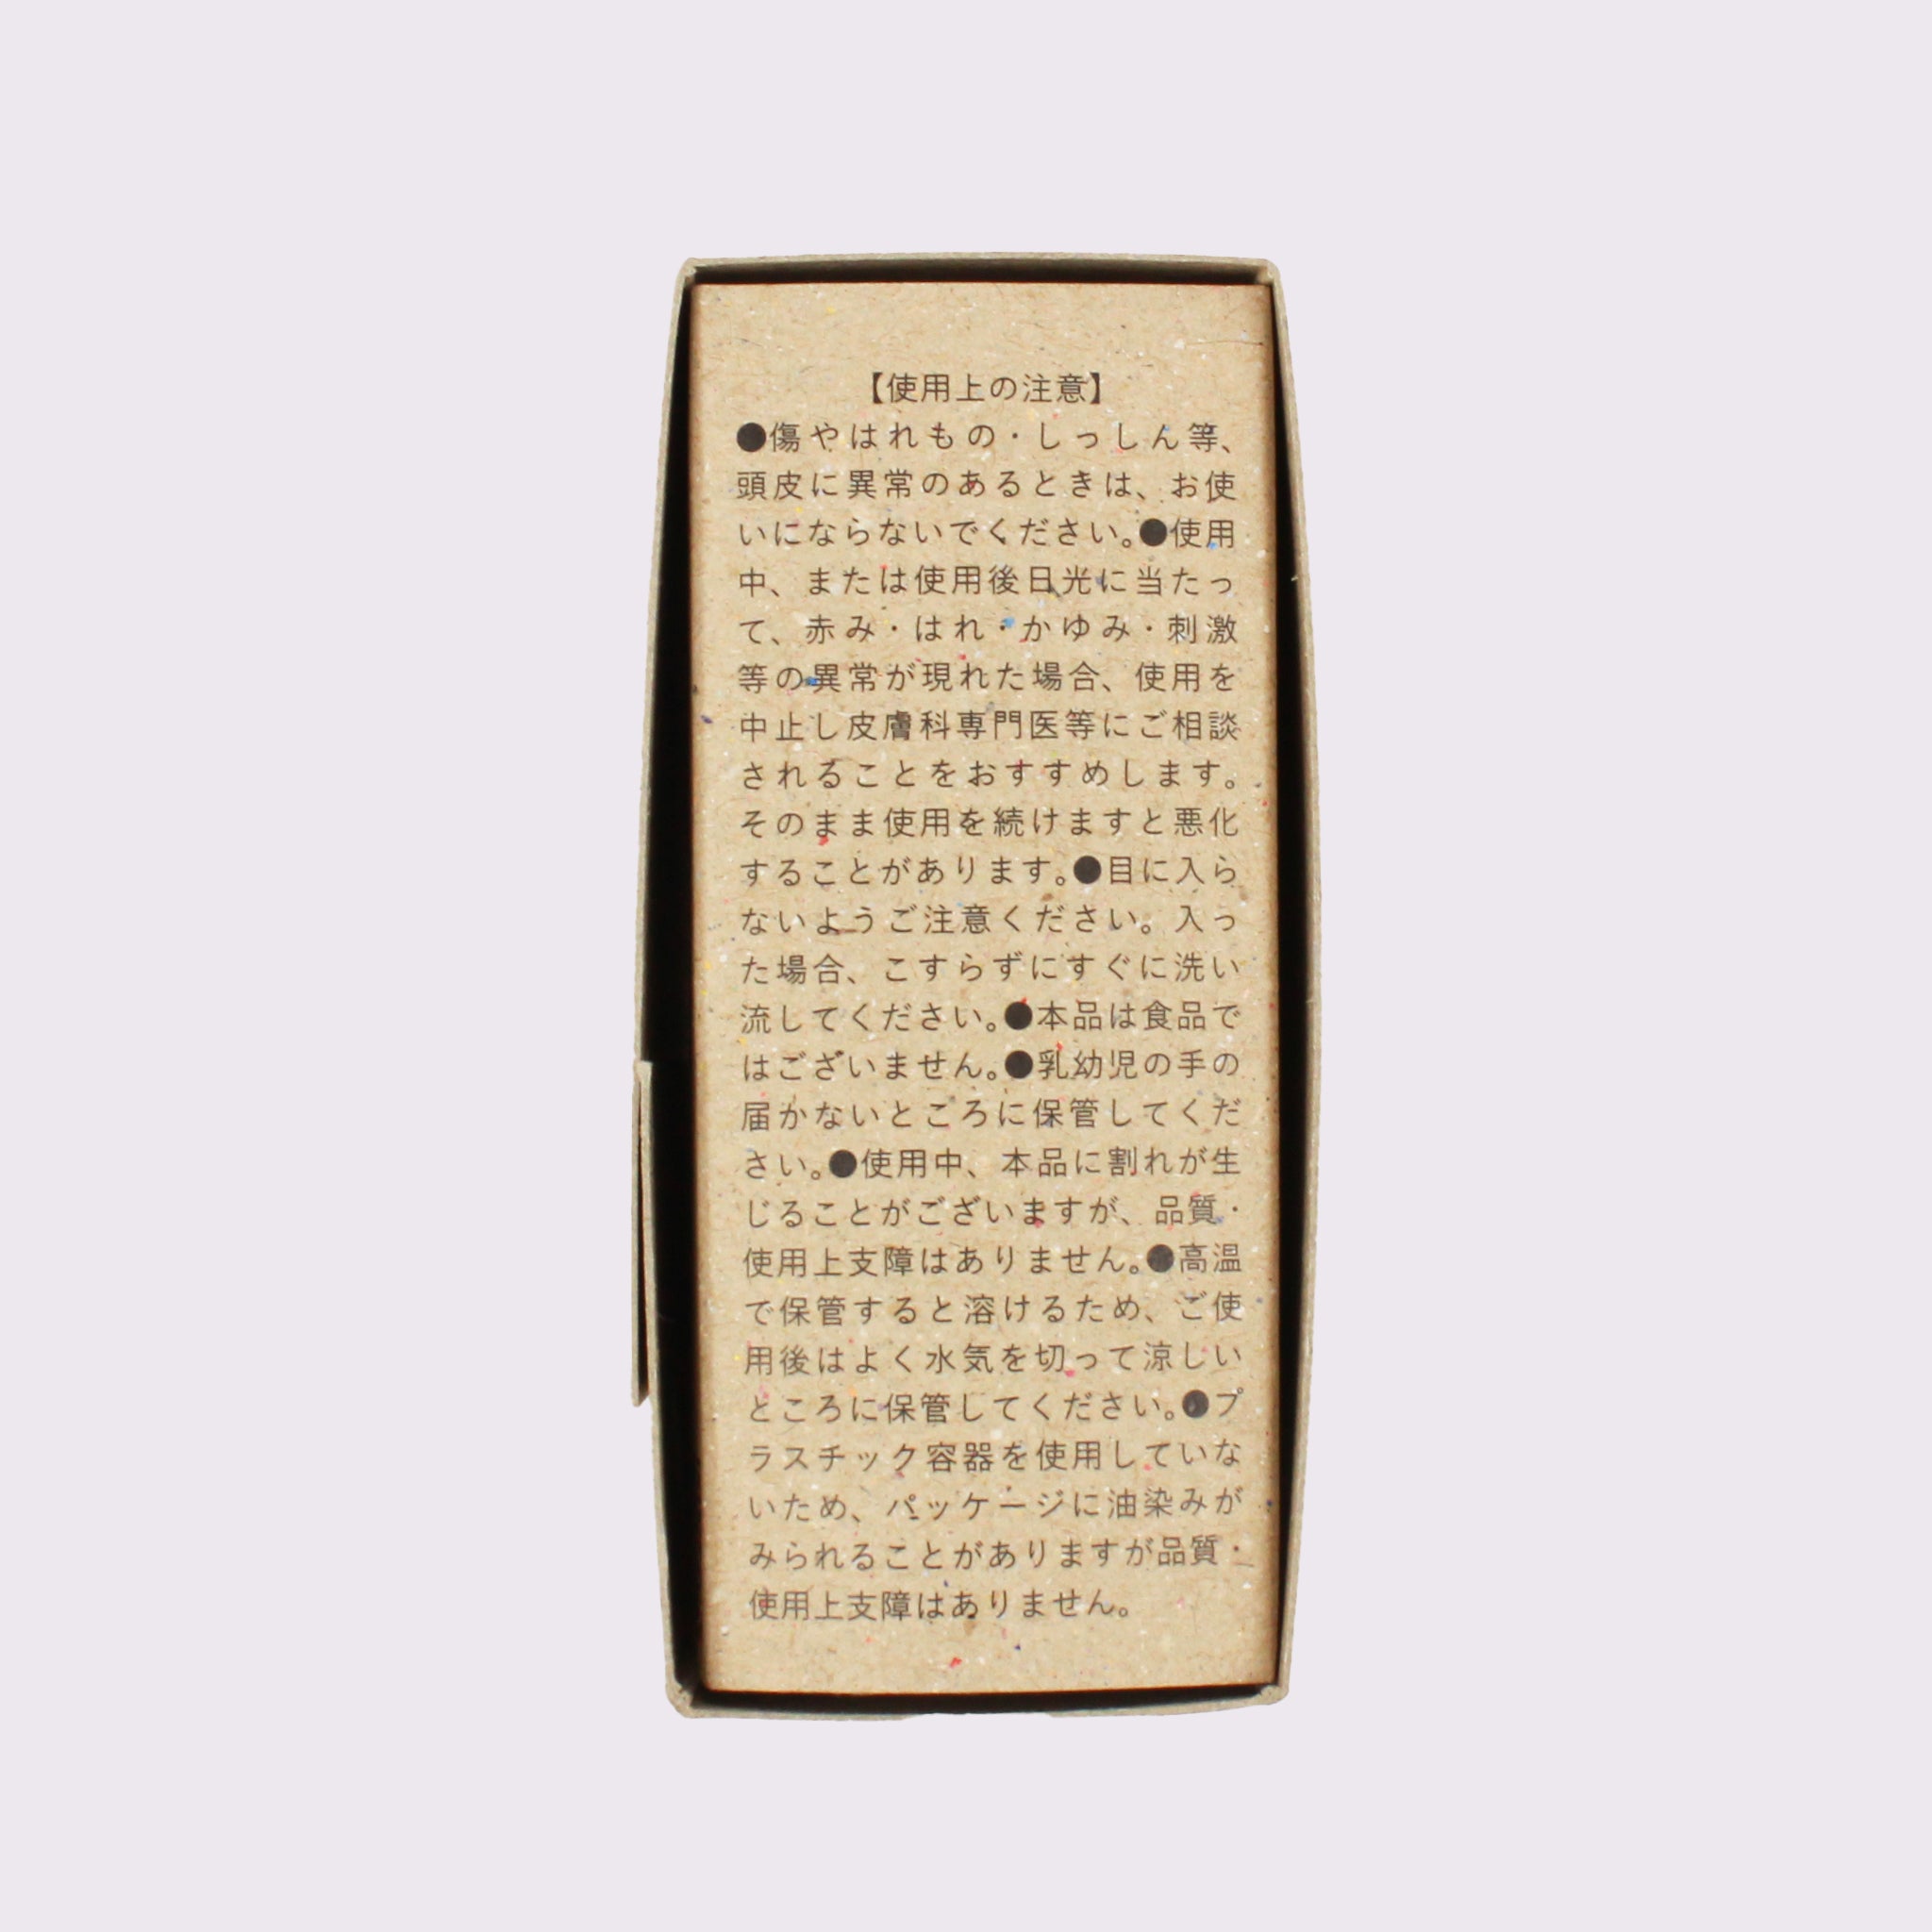 【使用上の注意】
●傷やはれもの・しっしん等、
頭皮に異常のあるときは、お使
いにならないでください。●使用
中、または使用後日光に当たっ
て、赤み・はれ・かゆみ・刺激
等の異常が現れた場合、使用を
中止し皮膚科専門医等にご相談
されることをおすすめします。
そのまま使用を続けますと悪化
することがあります。●目に入ら
ないようご注意ください。入っ
た場合、こすらずにすぐに洗い
流してください。●本品は食品で
はございません。●乳幼児の手の
届かないところに保管してくだ
さい。●使用中、本品に割れが生
じることがございますが、品質・
使用上支障はありません。●高温
で保管すると溶けるため、ご使
用後はよく水気を切って涼しい
ところに保管してください。●プ
ラスチック容器を使用していな
いため、パッケージに油染みが
みられることがありますが品質・
使用上支障はありません。